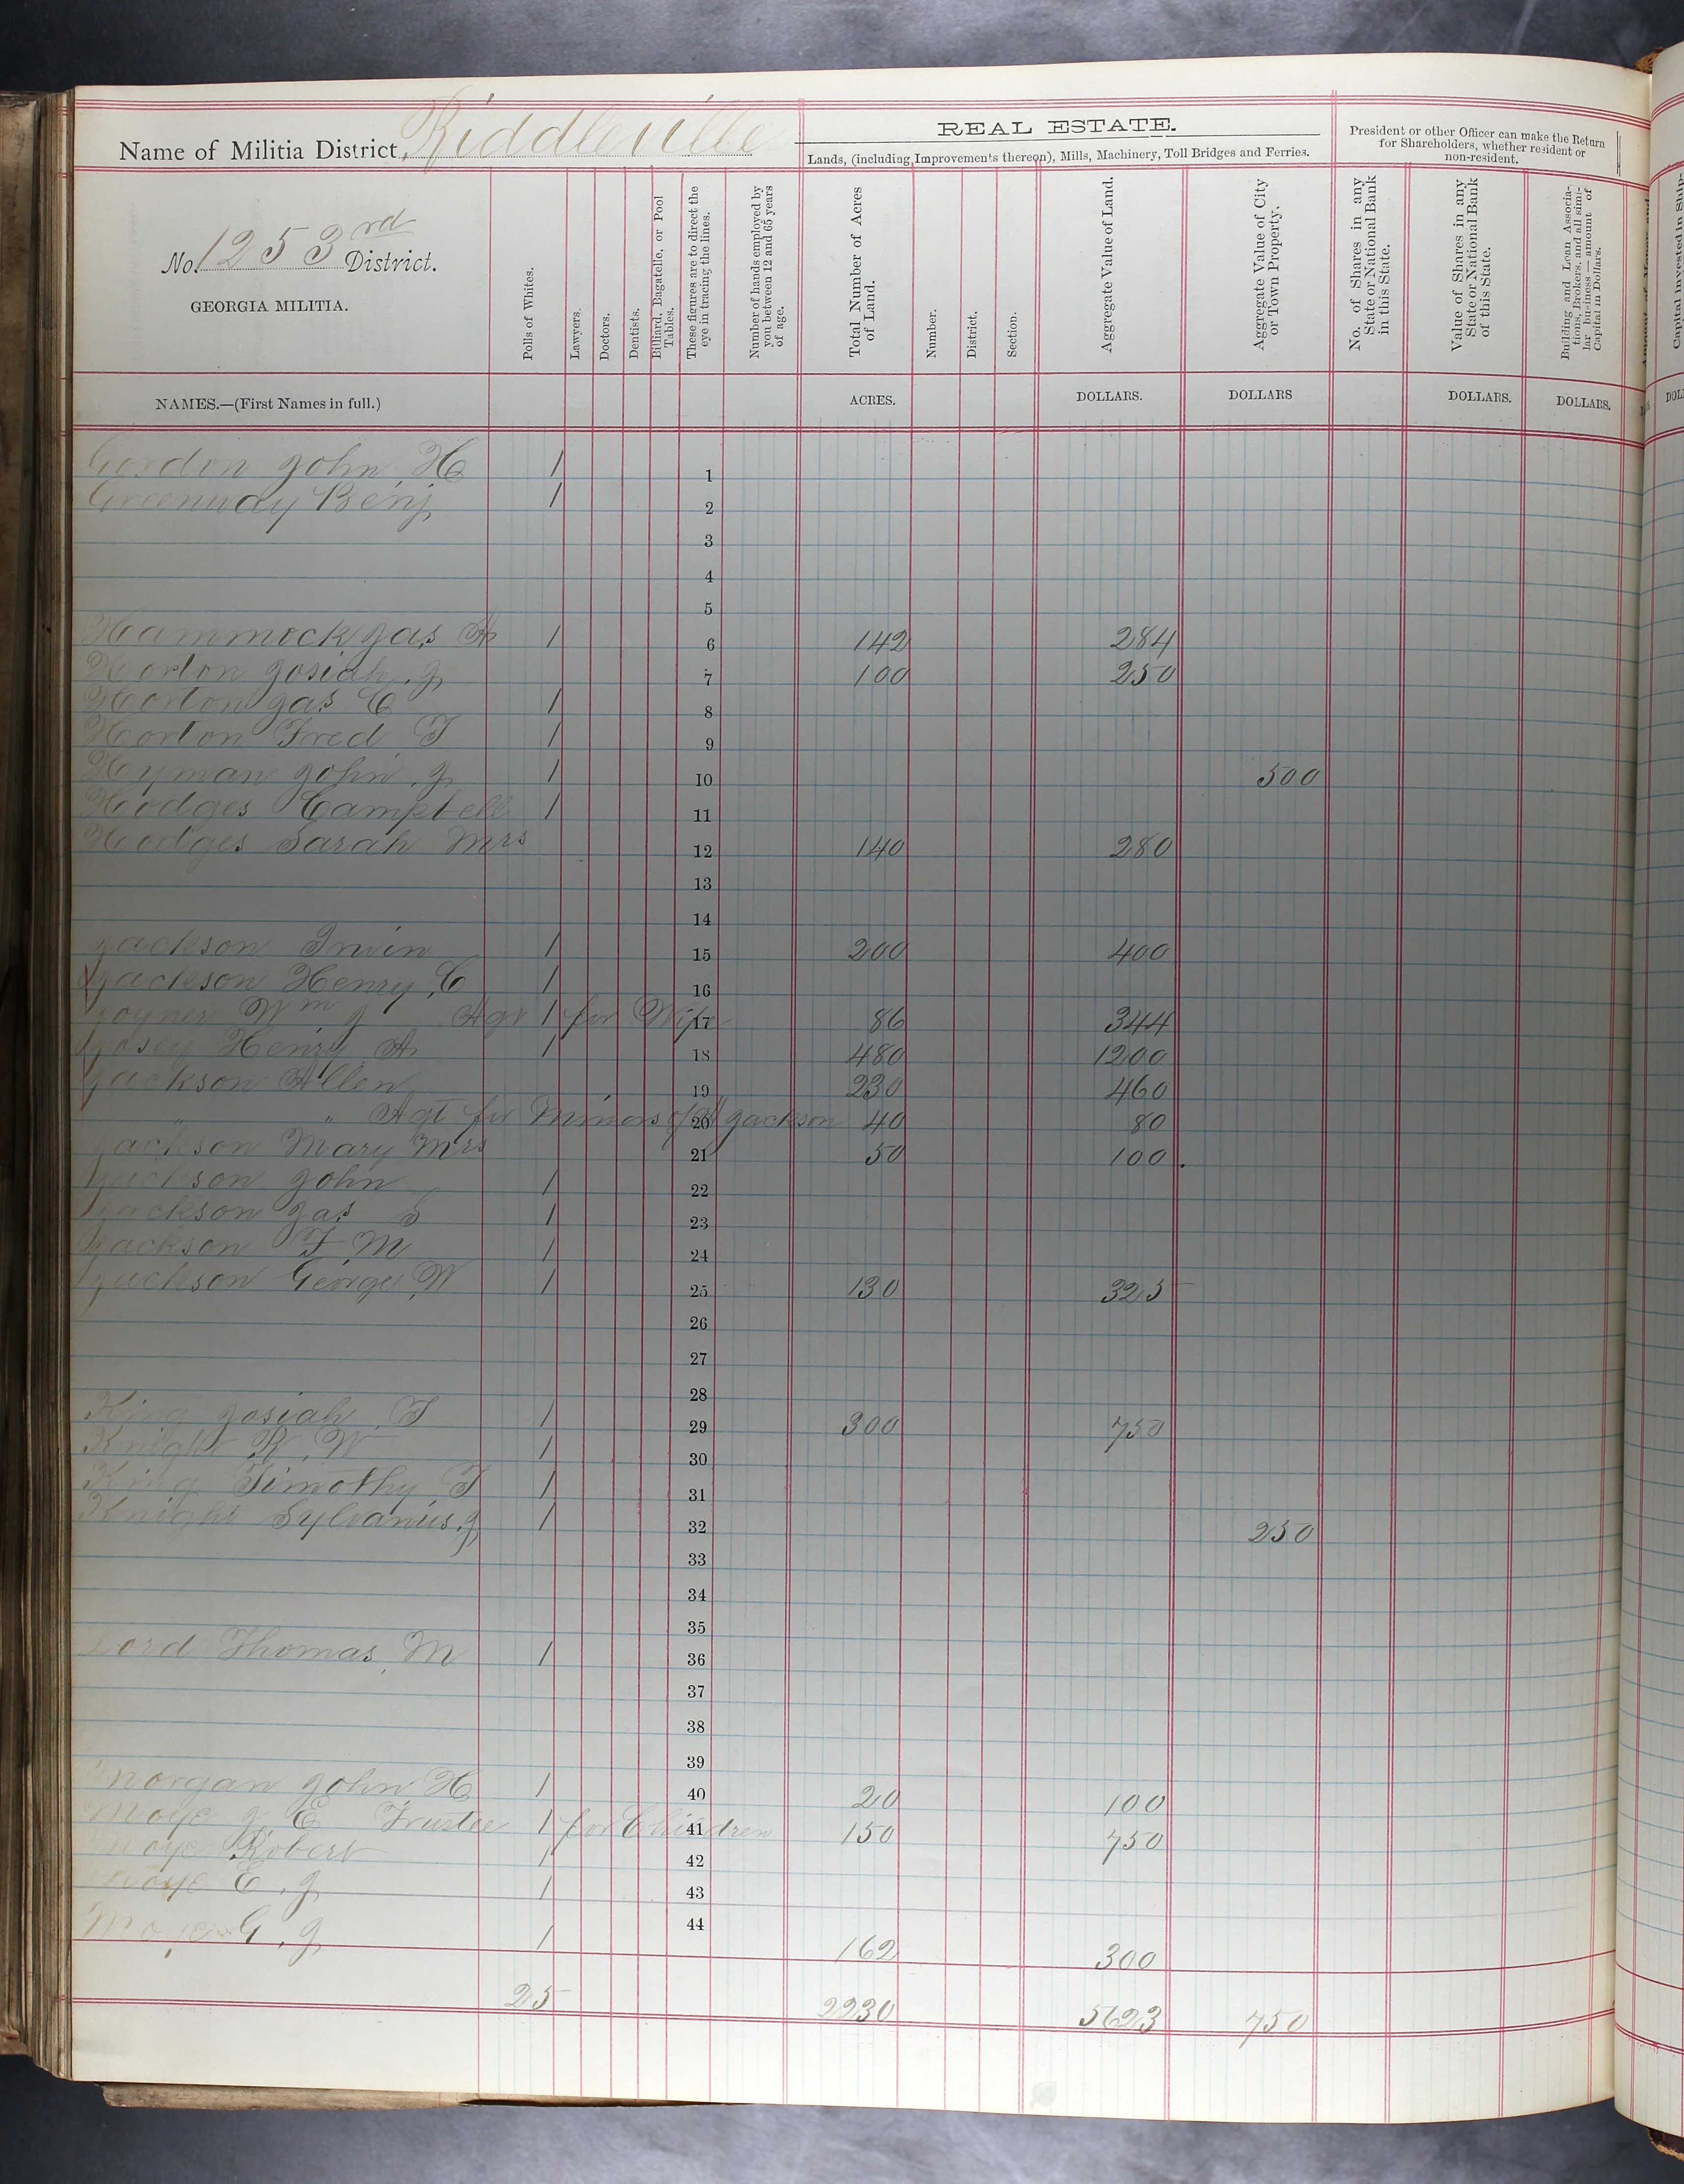 Name of Militia District, Riddleville
No. 1253rd District.
GEORGIA MILITIA.
REAL ESTATE.
Lands, (including Improvements thereon), Mills, Machinery, Toll Bridges and Ferries.
President or other Officer can make the Return
for Shareholders, whether resident or
non-resident.
Polls of Whites.
Lawyers.
Doctors.
Dentists.
Billiard, Bagatelle, or Pool Tables.
These figures are to direct the eye in tracing the lines.
Number of hands employed by you between 12 and 65 years of age.
Total Number of Acres of Land.
Number.
District.
Section.
Aggregate Value of Land.
Aggregate Value of City or Town Property.
No. of Shares in any State or National Bank in this State.
Value of Shares in any State or National Bank of this State.
Building and Loan Associations, Brokers, and all similar business — amount of Capital in Dollars.
Capital Invested in Ship-
NAMES.—(First Names in full.) ACRES. DOLLARS. DOLLARS DOLLARS. DOLLARS. DOLL
Gordon John H 1 1
Greenway Benj 1 2
3
4
5
Hammock Jas A 1 6 142 284
Horton Josiah J 7 100 250
Horton Jas C 1 8
Horton Fred T 1 9
Hyman John J 1 10 500
Hodges Campbell 1 11
Hodges Sarah Mrs 12 140 280
13
14
Jackson Irwin 1 15 200 400
Jackson Henry C 1 16
Joyner Wm J Agt 1 for Wife 17 86 344
Josey Henry A 1 18 480 1200
Jackson Allen 19 230 460
" Agt for Minors of Jackson 20 40 80
Jackson Mary Mrs 21 50 100
Jackson John 1 22
Jackson Jas S 1 23
Jackson F M 1 24
Jackson George W 1 25 130 325
26
27
28
King Josiah T 1 29 300 750
Knight R W 1 30
King Timothy T 1 31
Knight Sylvanius J 1 32 250
33
34
35
Lord Thomas M 1 36
37
38
39
Morgan John H 1 40 20 100
Moye J E Trustee 1 for Children 41 150 750
Moye Robert 1 42
Moye E J 1 43
Moye G J 1 44 162 300
25 2230 5623 750